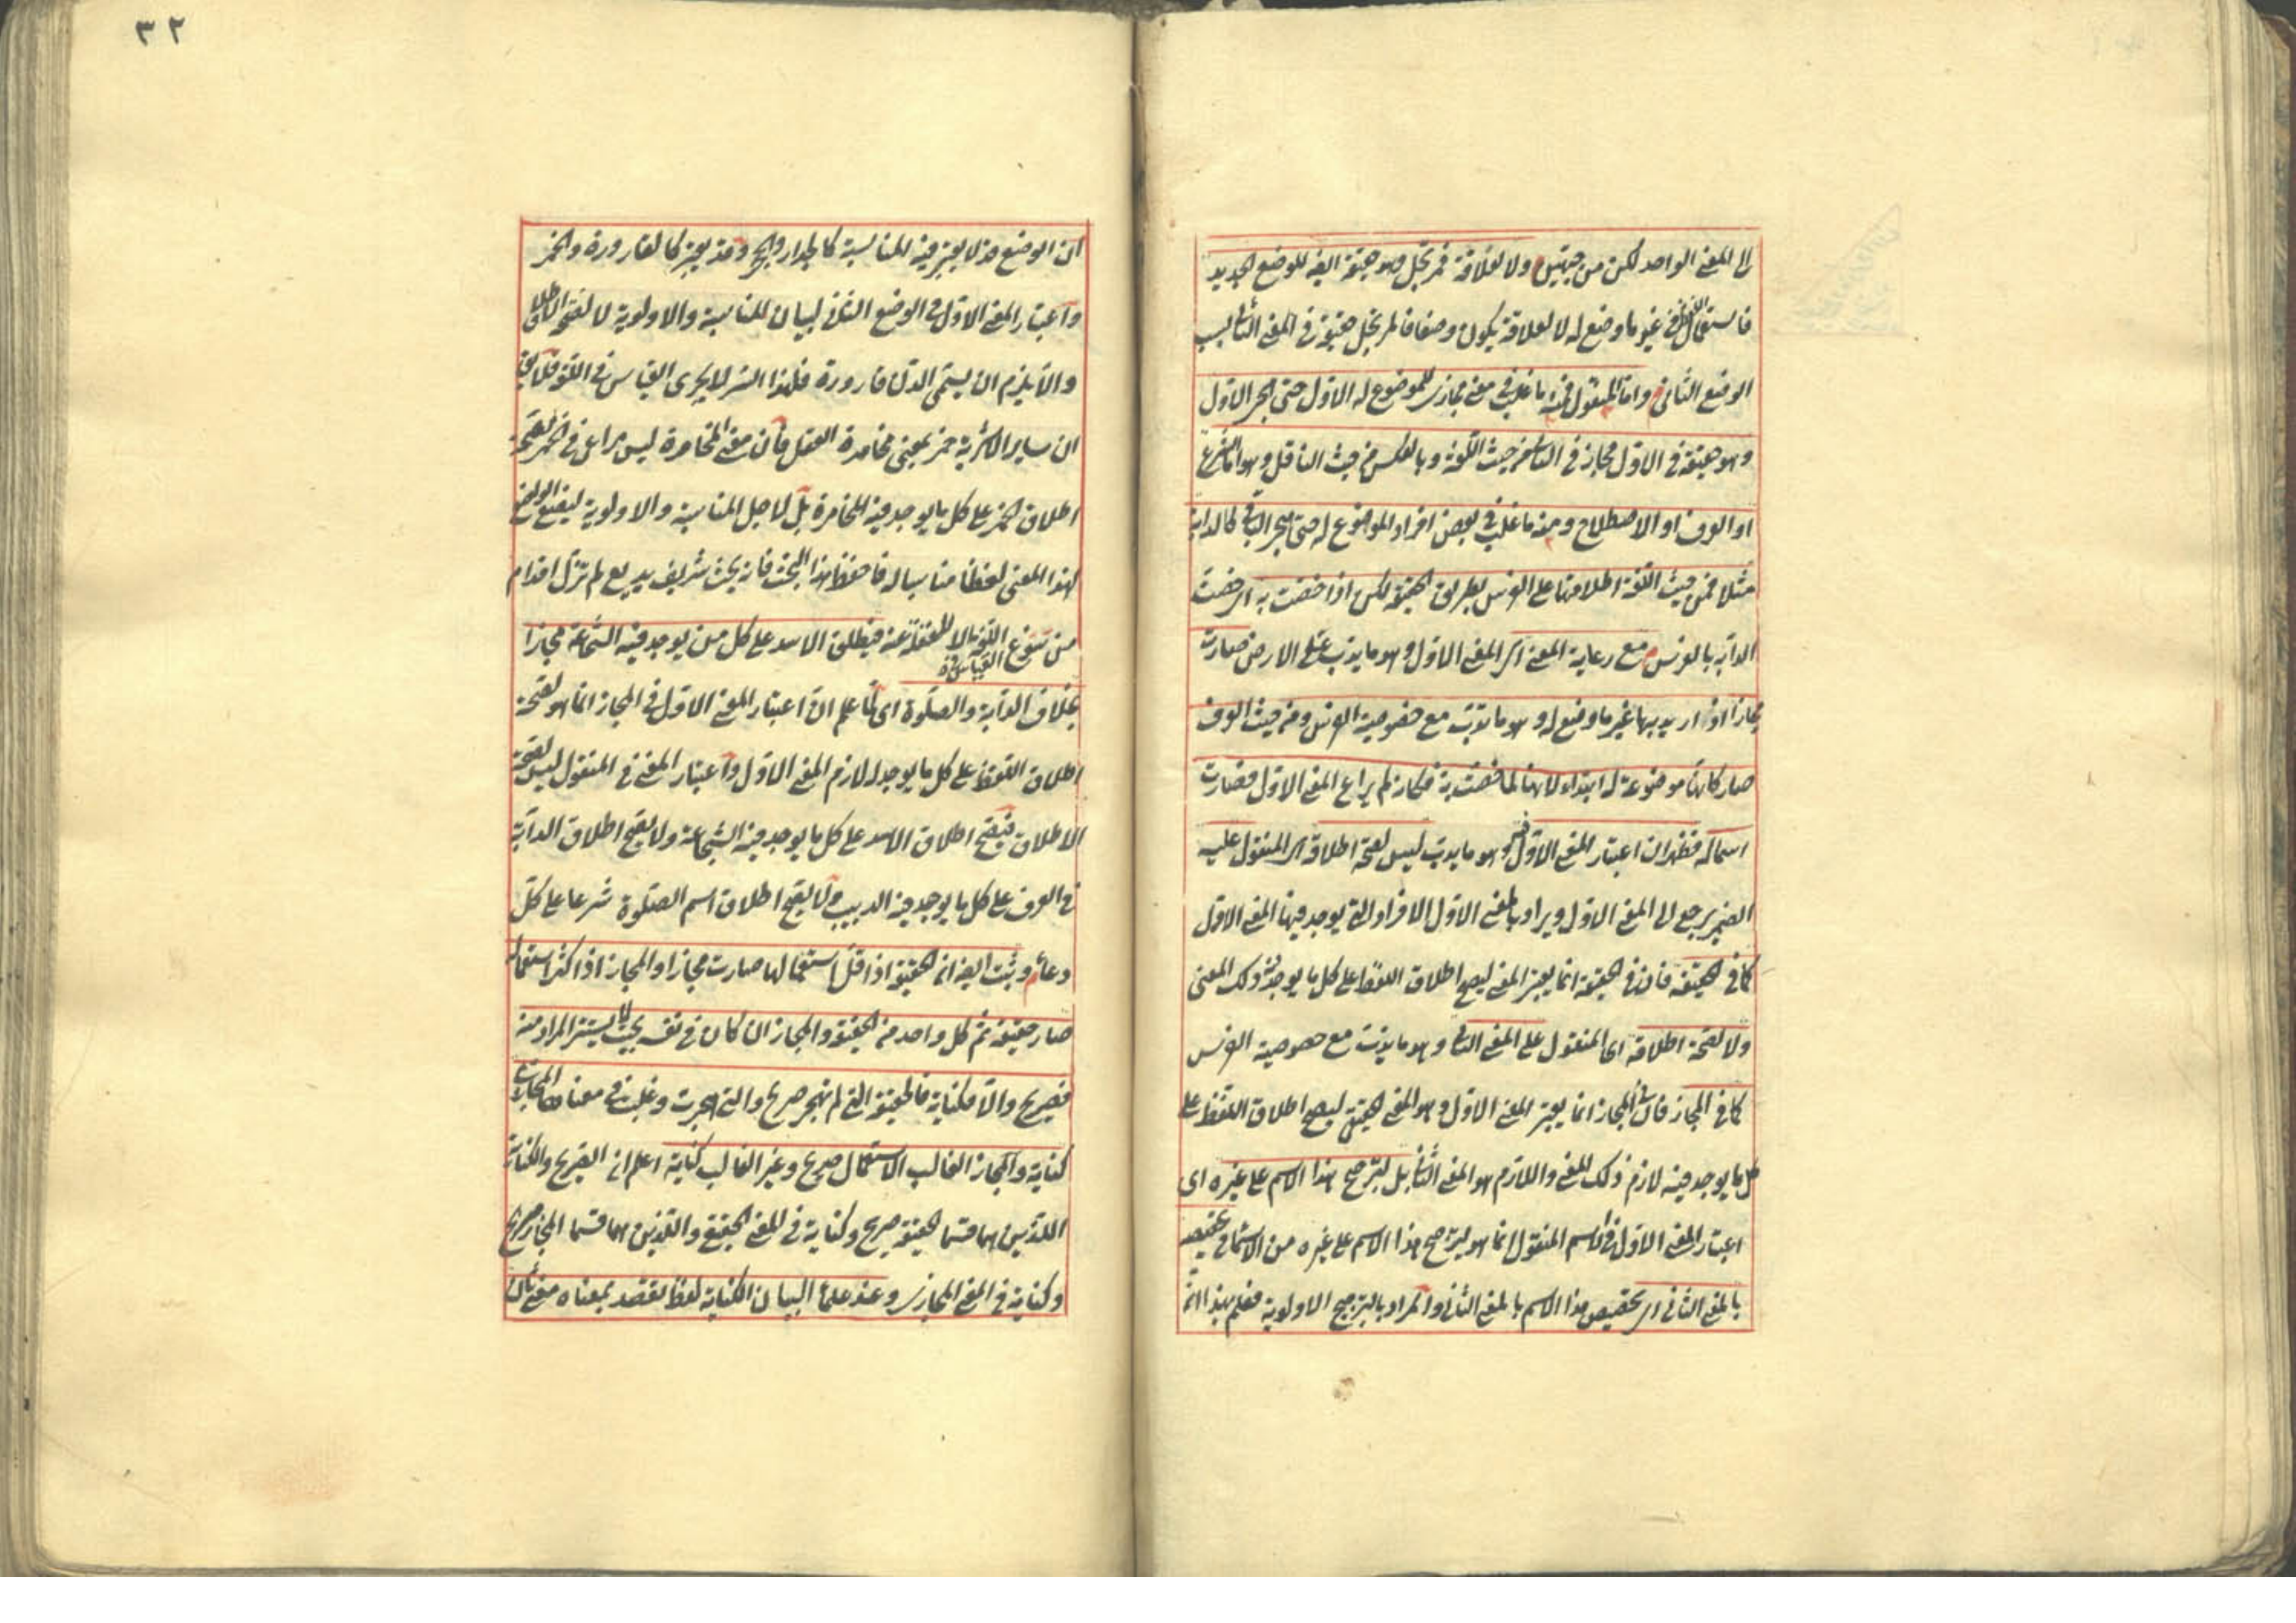 الى المعنى الواحد لكن من جهتين ولا لعلاقة فمرتجل وهو حقيقة ايضا للوضع الجديد
فاستعمال اللفظ في غير ما وضع له لا لعلاقة يكون وضعا فالمرتجل حقيقة في المعنى الثاني بسبب
الوضع الثاني واما المنقول فمنه ما غلب في معنى مجازى للموضوع له الاول حتى هجر الاول
وهو حقيقة في الاول مجاز في الثاني من حيث اللغة وبالعكس من حيث الناقل وهو اما الشرع
او العرف او الاصطلاح ومنه ما غلب في بعض افراد الموضوع له حتى هجر الباقى كالدابة
مثلا فمن حيث اللغة اطلاقها على الفرس بطريق الحقيقة لكن اذا خصت به اى خصت
الدابة بالفرس مع رعاية المعنى اى المعنى الاول وهو ما يدب على الارض صارت
مجازا اذ اريد بها غير ما وضع له وهو ما يدب مع خصوصية الفرس ومن حيث العرف
صار كانها موضوعة له ابتداء لانها لما خصت به فكانه لم يراع المعنى الاول فصارت
اسما له فظهر ان اعتبار المعنى الاول فيه وهو ما يدب ليس لصحة اطلاقه اى المنقول عليه
الضمير يرجع الى المعنى الاول ويراد بالمعنى الاول الافراد التى يوجد فيها المعنى الاول
كما في الحقيقة فان في الحقيقة انما يعتبر المعنى ليصح اطلاق اللفظ على كل ما يوجد فيه ذلك المعنى
ولا لصحة اطلاقه اى المنقول على المعنى الثانى وهو ما يدب مع خصوصية الفرس
كما في المجاز فان في المجاز انما يعتبر المعنى الاول وهو المعنى الحقيقى ليصح اطلاق اللفظ على
كل ما يوجد فيه لازم ذلك المعنى واللازم هو المعنى الثانى بل لترجح هذا الاسم على غيره اى
اعتبار المعنى الاول في الاسم المنقول انما هو لترجح هذا الاسم على غيره من الاسماء في تخصيصه
بالمعنى الثانى اى تخصيص هذا الاسم بالمعنى الثانى والمراد بالترجح الاولوية فعلم بهذا ان
٣٢
ان الوضع قد لا يعتبر فيه المناسبة كالجدار والحجر وقد يعتبر كالقارورة والخمر
واعتبار المعنى الاول في الوضع الثانى لبيان المناسبة والاولوية لا لصحة الاطلاق
والا يلزم ان يسمى الدن قارورة فلهذا السر لا يجرى القياس في اللغة فلا يقال
ان ساير الاشربة خمر بمعنى مخامرة العقل فان معنى المخامرة ليس مراعى في الخمر لصحة
اطلاق الخمر على كل ما يوجد فيه المخامرة بل لاجل المناسبة والاولوية ليضع الواضع
لهذا المعنى لفظا مناسبا له فاحفظ هذا البحث فانه بحث شريف بديع لم تزل اقدام
من سوغ القياس في اللغة الا للغفلة عنه فيطلق الاسد على كل من يوجد فيه الشجاعة مجازا
بخلاف الدابة والصلوة اى لما علم ان اعتبار المعنى الاول في المجاز انما هو لصحة
اطلاق اللفظ على كل ما يوجد له لازم المعنى الاول واعتبار المعنى في المنقول ليس لصحة
الاطلاق فيصح اطلاق الاسد على كل ما يوجد فيه الشجاعة ولا يصح اطلاق الدابة
في العرف على كل ما يوجد فيه الدبيب ولا يصح اطلاق اسم الصلوة شرعا على كل
دعاء وثبت ايضا ان الحقيقة اذا قل استعمالها صارت مجازا والمجاز اذا كثر استعماله
صار حقيقة ثم كل واحد من الحقيقة والمجاز ان كان في نفسه بحيث لا يستتر المراد منه
فصريح والا فكناية فالحقيقة التى لم تهجر صريح والتى هجرت وغلب في معناها المجازى
كناية والمجاز الغالب الاستعمال صريح وغير الغالب كناية اعلم ان الصريح والكناية
اللذين هما قسما الحقيقة صريح وكناية في المعنى الحقيقى واللذين هما قسما المجاز صريح
وكناية في المعنى المجازى وعند علماء البيان الكناية لفظ يقصد بمعناه معنى ثان